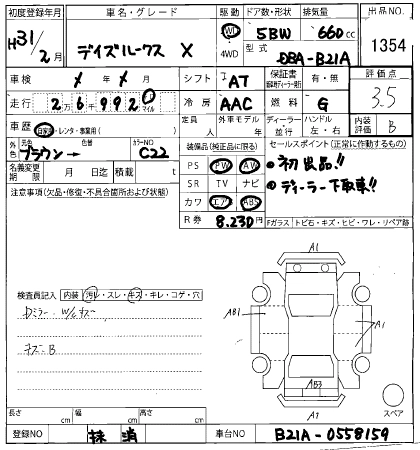 初度登録年月 車名・グレード 駆動 ドア数・形状 排気量 出品NO
H31/2月 デイズルークス X 2WD 4WD 5BW 660cc 1354
型式 DBA-B21A
車検 / / シフト IAT 保証書 有・無 評価点 3.5
走行 26992 マイル 冷房 AAC 燃料 G 内装評価 B
車歴 自家用・レンタ・事業用( ) 定員 人 外車モデル 年 ディーラー 並行 ハンドル 左・右
外色 元色 ブラウン→ 色替 カラーNO C22
装備品(純正品に限る) セールスポイント(正常に作動するもの)
名義変更期限 月 日迄 積載 t
PS PW AW ・初出品!!
SR TV ナビ ・ディーラー下取車!!
カワ エアB ABS
R券 8.230円
注意事項(欠品・修復・不具合箇所および状態)
Fガラス トビ石・キズ・ヒビ・ワレ・リペア跡
A1
AB1
A1
AB3
A1
スペア
検査員記入 内装 汚レ・スレ・キズ・キレ・コゲ・穴
Dミラー W/Cキズ
キズ-B
長さ cm 幅 cm 高さ cm
登録NO 抹消 車台NO B21A-0558159